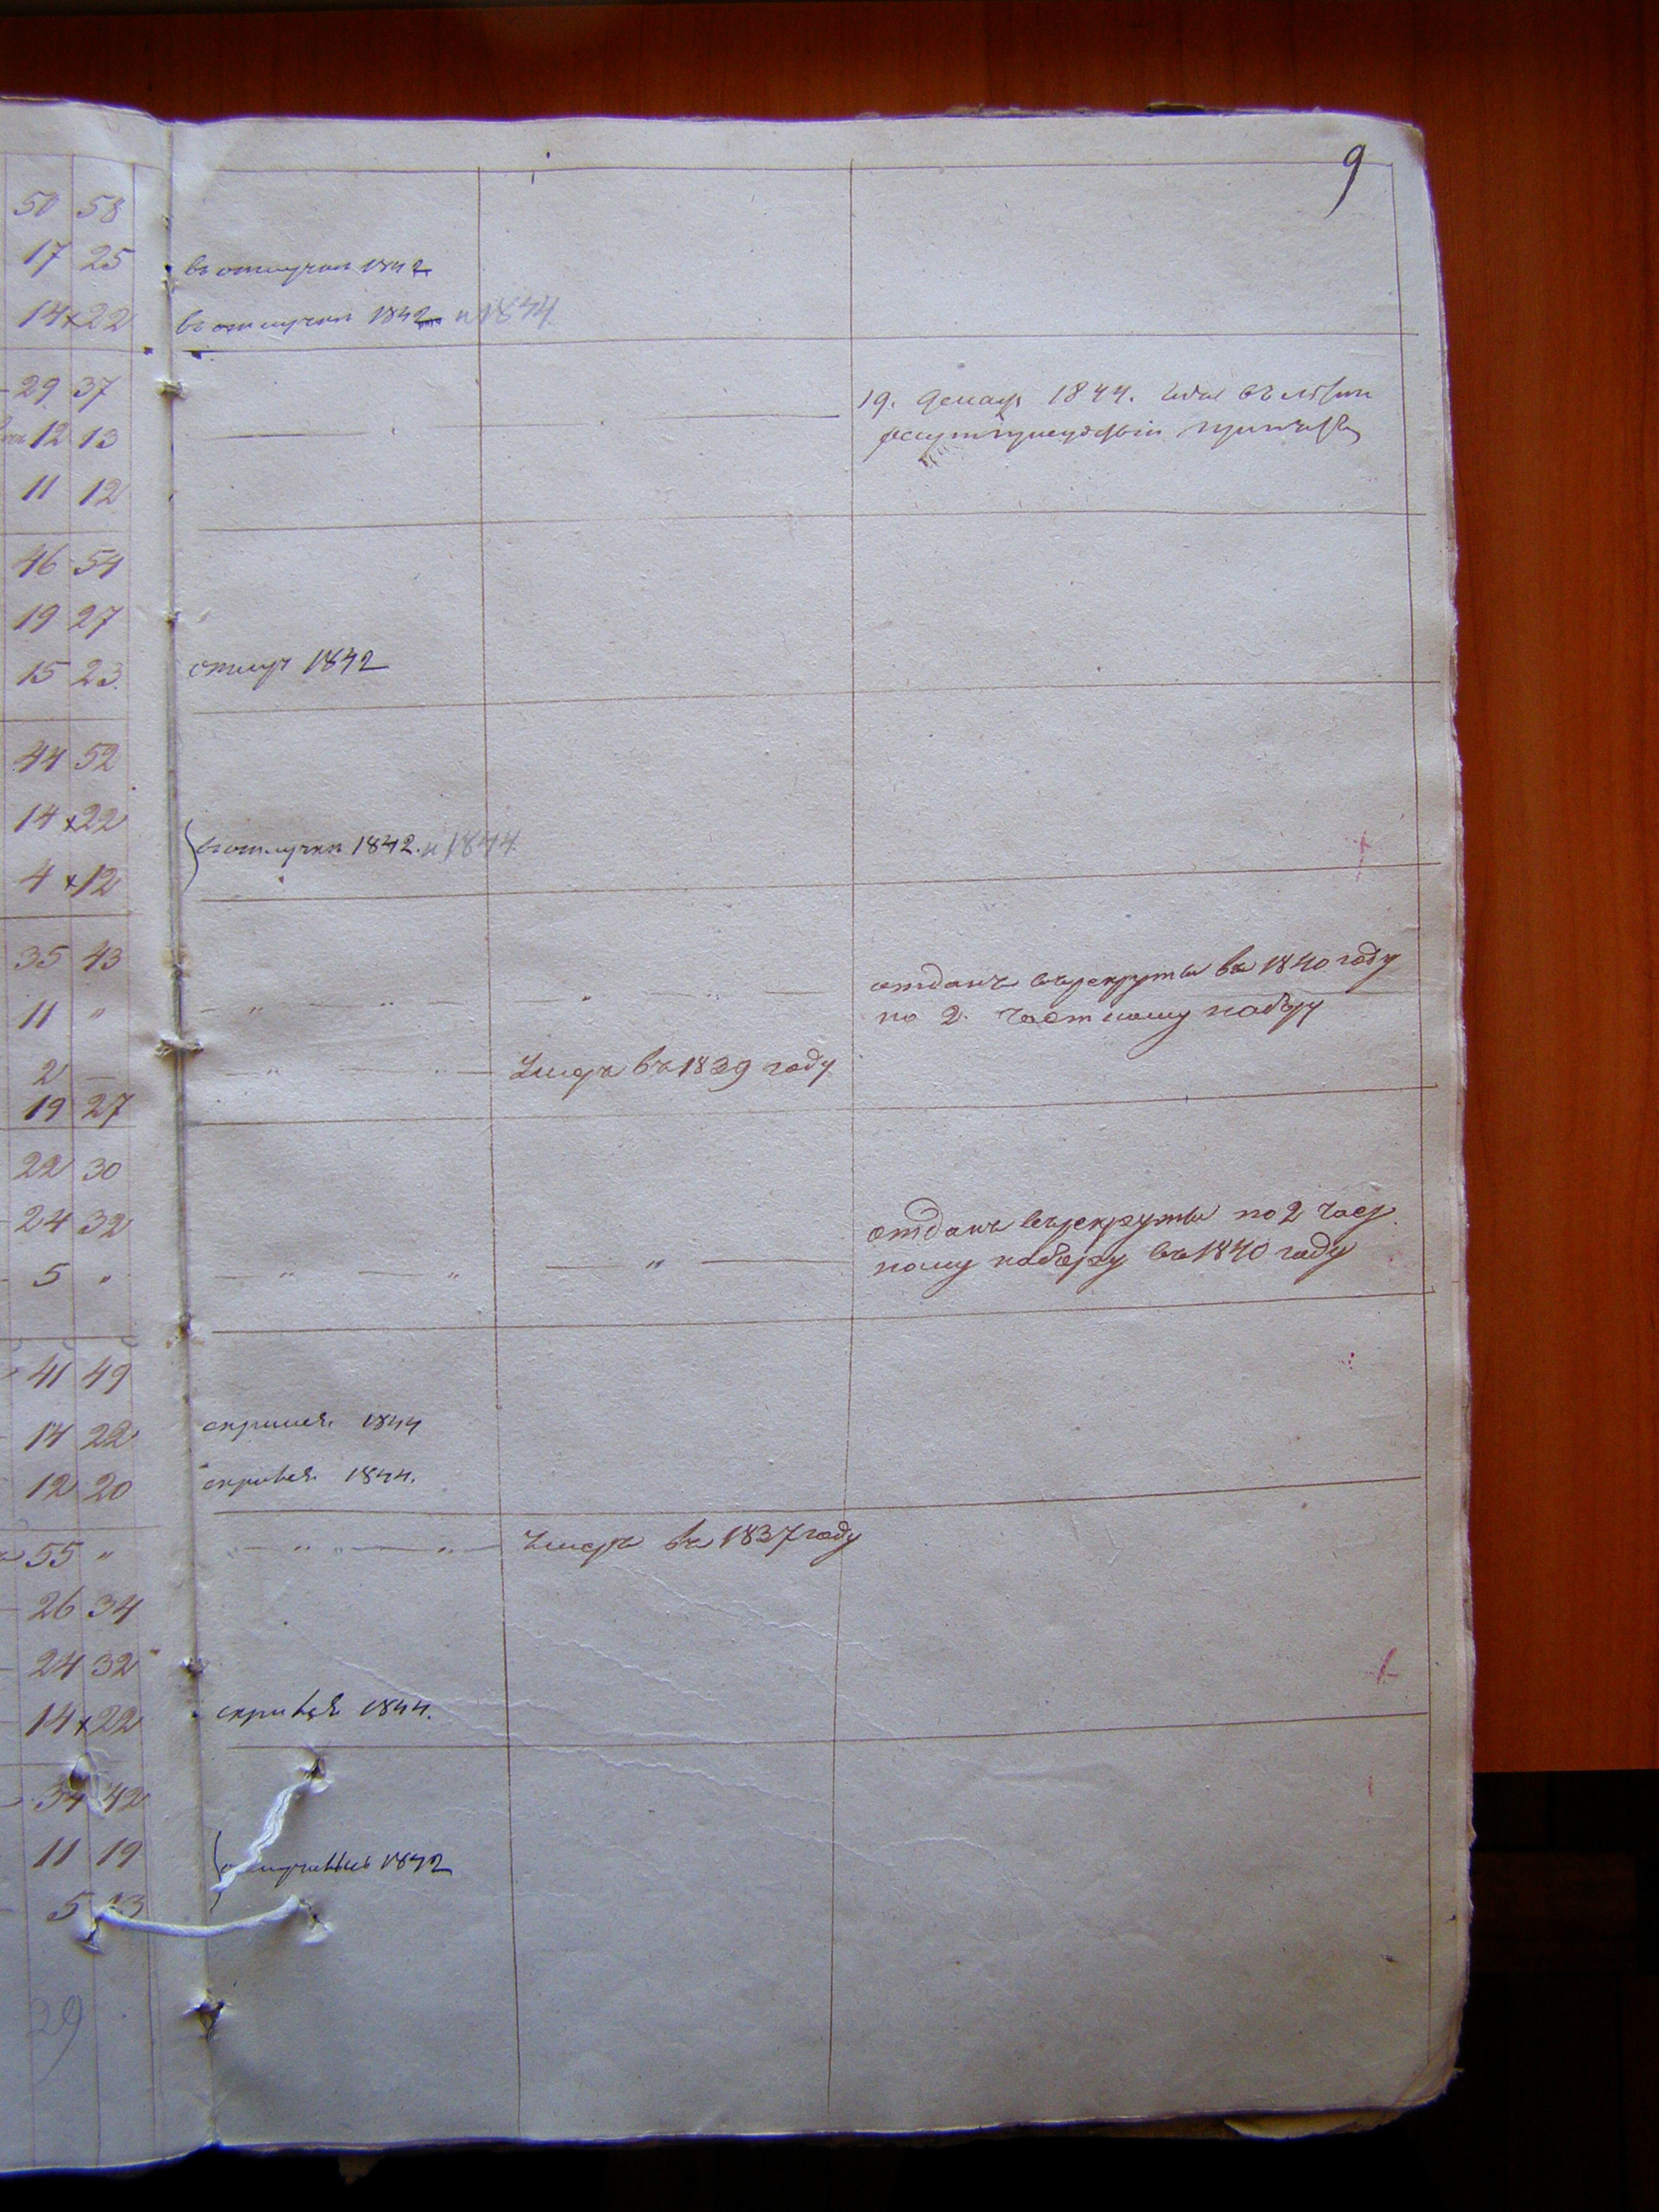 9
50 58
17 25 въ отлучки 1842
14 x 22 въ отлучки 1842 и 1844
29 37 19. 1844.
12 13
11 12
46 54
19 27
15 23. отлуч 1842
44 52
14 x 22
въ отлучки 1842. и 1844
4 x 12
35 43 отданъ въ рекруты въ 1840 году
11 " по 2. частному набору
2 — Умеръ въ 1839 году
19 27
22 30
24 32 отданъ въ рекруты по 2 част
5 " ному набору въ 1840 году
41 49
14 22 1844
12 20 1844.
55 " Умеръ въ 1837 году
26 34
24 32
14 x 22 1844.
34 42
11 19 1842
5 13
29